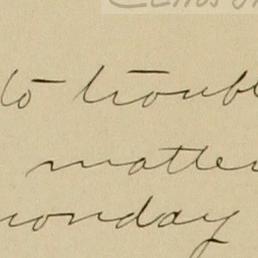 to trouble
matter
monday